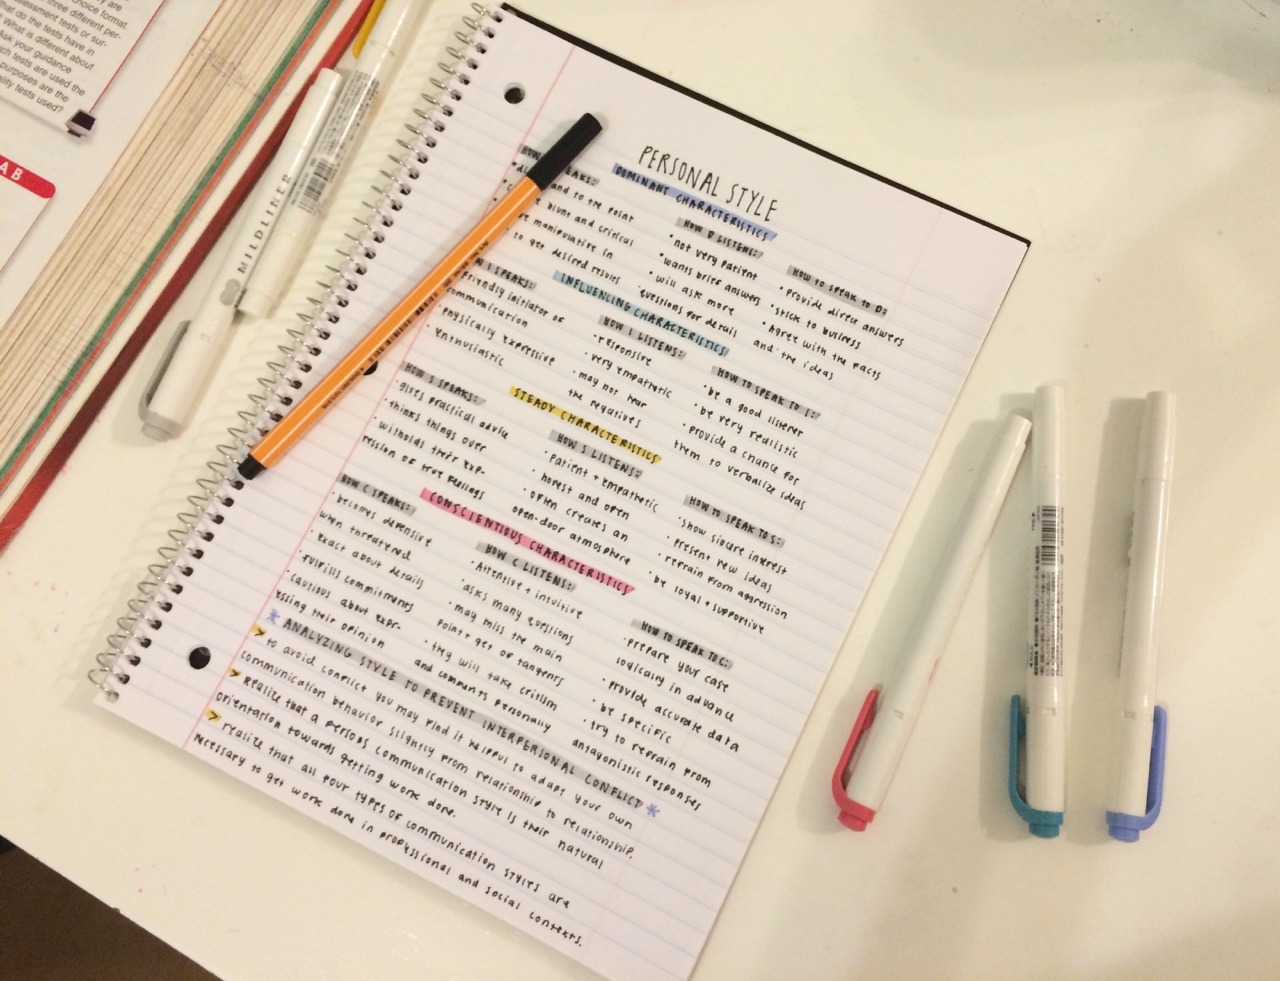 y are
choice format.
three different per-
assessment tests or sur-
hat do the tests have in
What is different about
Ask your guidance
ch tests are used the
purposes are the
ality tests used?
AB
MILDLINER
PERSONAL STYLE
DOMINANT CHARACTERISTICS
and to the point
blunt and critical
manipulative in
to get desired results
HOW D LISTENS:
• not very patient
• wants brief answers
• will ask more
questions for detail
HOW TO SPEAK TO D:
• provide direct answers
• stick to business
• Agree with the facts
and the ideas
INFLUENCING CHARACTERISTICS
I SPEAKS:
Friendly initiator of
communication
• physically expressive
• enthusiastic
HOW I LISTENS:
• responsive
• very empathetic
• may not hear
the negatives
HOW TO SPEAK TO I:
• be a good listener
• be very realistic
• provide a chance for
them to verbalize ideas
STEADY CHARACTERISTICS
HOW S SPEAKS:
• gives practical advice
• thinks things over
• witholds their exp-
ression of true feelings
HOW S LISTENS:
• patient + empathetic
• honest and open
• often creates an
open-door atmosphere
HOW TO SPEAK TO S:
• show sincere interest
• present new ideas
• refrain from aggression
• be loyal + supportive
CONSCIENTIOUS CHARACTERISTICS
HOW C SPEAKS:
• becomes defensive
when threatened
• exact about details
• fulfills commitments
• cautious about expr-
essing their opinion
HOW C LISTENS:
• Attentive + intuitive
• asks many questions
• may miss the main
point + get of tangents
• they will take critism
and comments personally
HOW TO SPEAK TO C:
• prepare your case
logically in advance
• provide accurate data
• be specific
• try to refrain from
antagonistic responses
* ANALYZING STYLE TO PREVENT INTERPERSONAL CONFLICT *
> to avoid conflict you may find it helpful to adapt your own
communication behavior slightly from relationship to relationship.
> Realize that a persons communication style is their natural
orientation towards getting work done.
> realize that all four types of communication styles are
necessary to get work done in professional and social contexts.